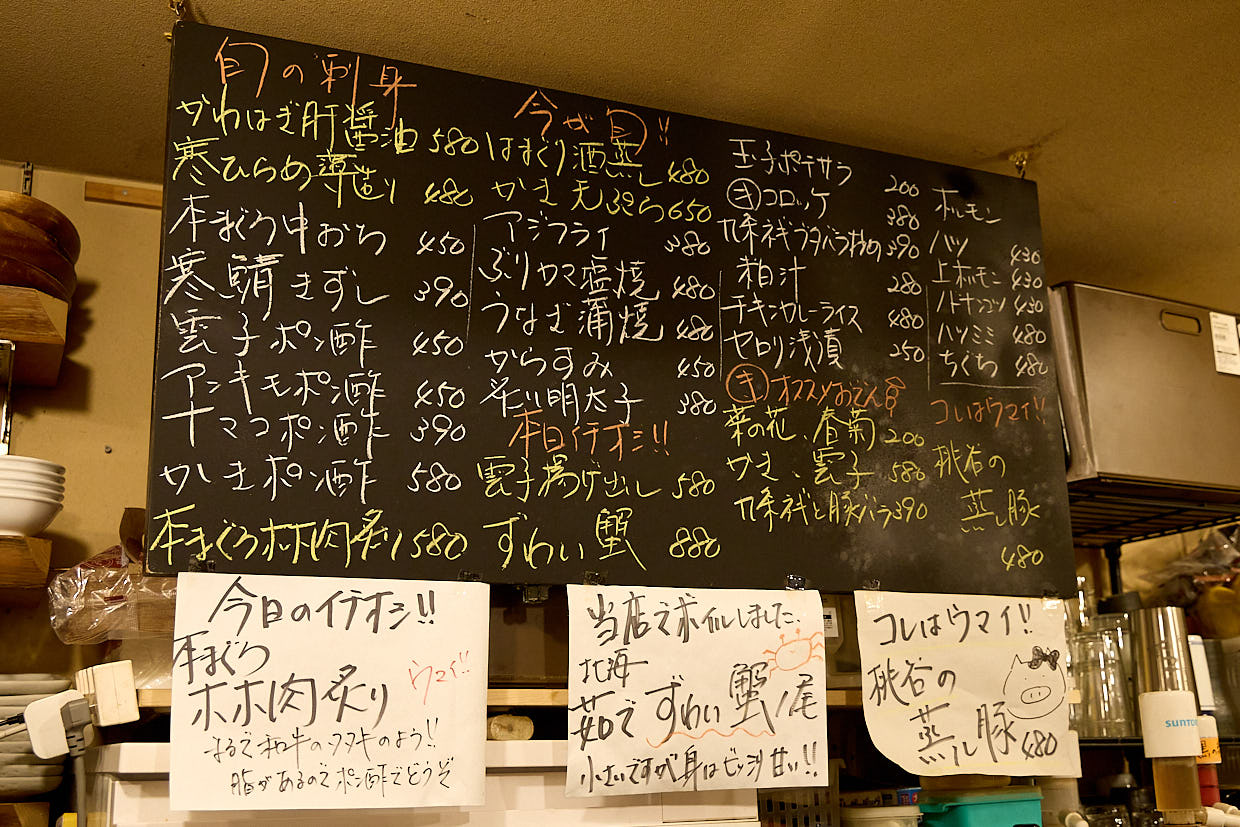 旬の刺身
かわはぎ肝醤油 580
寒ひらめ薄造り 480
本まぐろ中おち 450
寒鯖きずし 390
雲子ポン酢 450
アンキモポン酢 450
ナマコポン酢 390
かきポン酢 580
本まぐろホホ肉炙り 580
今が旬!!
はまぐり酒蒸し 480
かき天ぷら 650
アジフライ 380
ぶりカマ塩焼 480
うなぎ蒲焼 480
からすみ 450
炙り明太子 380
本日イチオシ!!
雲子揚げ出し 580
ずわい蟹 880
玉子ポテサラ 200
コロッケ 380
九条ネギブタバラ炒め 390
粕汁 280
チキンカレーライス 480
セロリ浅漬 250
オススメおでん
菜の花、春菊 200
かき、雲子 580
九条ネギと豚バラ 390
ホルモン
ハツ 430
上ホルモン 430
ノドナンコツ 430
ハツミミ 480
ちくち 480
コレはウマイ!!
桃谷の
蒸し豚
480
今日のイチオシ!!
本まぐろ
ホホ肉炙り
ウマイ!!
まるで和牛のタタキのよう!!
脂があるのでポン酢でどうぞ
当店でボイルしました、
北海
茹でずわい蟹1尾
小さいですが身はビッシリ甘い!!
コレはウマイ!!
桃谷の
蒸し豚 480
SUNTO